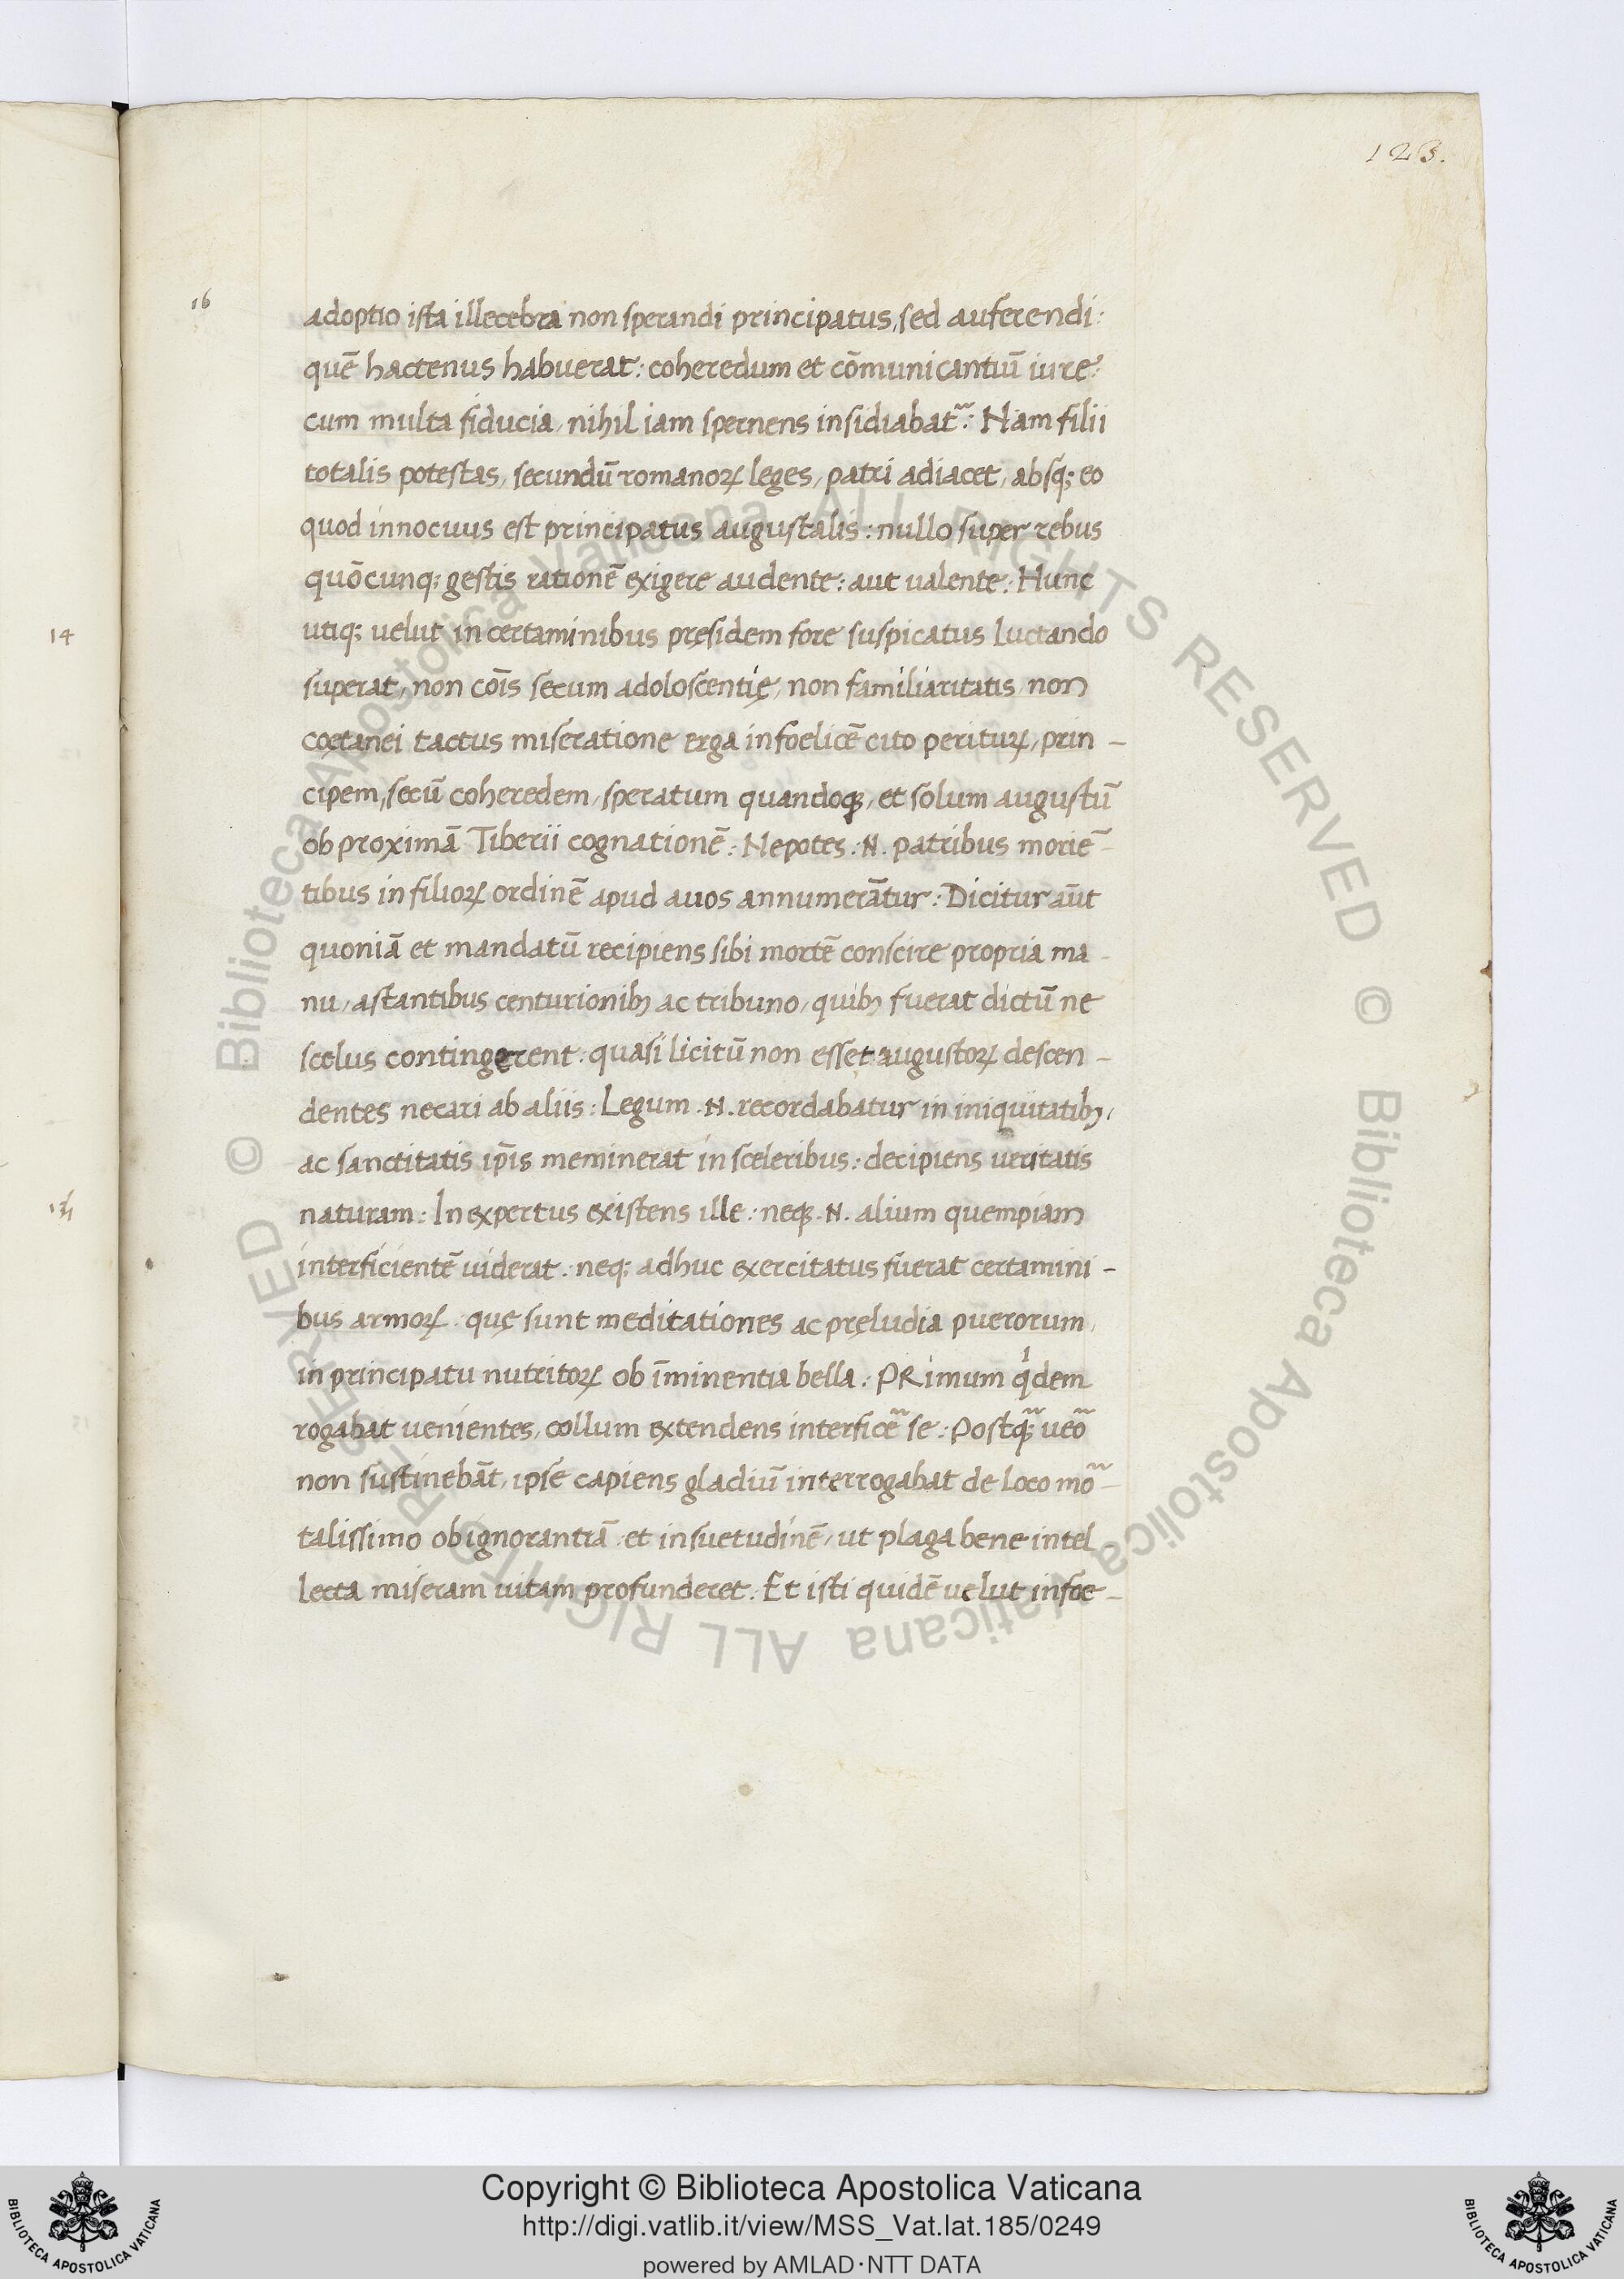 123.
16
adoptio ista illecebra non sperandi principatus, sed auferendi:
quē hactenus habuerat: coheredum et cōmunicantiū iure:
cum multa fiducia, nihil iam spernens insidiabat᷑: Nam filii
totalis potestas, secundū romanoꝝ leges, patri adiacet, absq; eo
quod innocuus est principatus augustalis: nullo super rebus
quōcunq; gestis rationē exigere audente: aut ualente: Hunc
14
utiq; uelut in certaminibus pręsidem fore suspicatus luctando
superat, non cōis secum adoloscentię, non familiaritatis, non
coętanei tactus miseratione erga infoelicē cito perituꝝ, prin-
cipem, secū coheredem, speratum quandoq;, et solum augustū
ob proximā Tiberii cognationē: Nepotes .N. patribus moriē-
tibus in filioꝝ ordinē apud auos annumerātur: Dicitur aūt
quoniā et mandatū recipiens sibi mortē conscire propria ma-
nu, astantibus centurionibꝫ ac tribuno, quibꝫ fuerat dictū ne
scelus contingerent: quasi licitū non esset augustoꝝ descen-
dentes necari ab aliis: Legum .N. recordabatur in iniquitatibꝫ,
ac sanctitatis ip̄is meminerat in sceleribus: decipiens ueritatis
naturam: Inexpertus existens ille: neq; .N. alium quempiam
interficientē uiderat: neq; adhuc exercitatus fuerat certamini-
bus armoꝝ. quę sunt meditationes ac pręludia puerorum,
in principatu nutritoꝝ ob īminentia bella: PRimum qͥdem
rogabat uenientes, collum extendens interficē se: Postq̄; ueō
non sustinebāt, ipse capiens gladiū interrogabat de loco mō-
talissimo ob ignorantiā et insuetudinē, ut plaga bene intel
lecta miseram uitam profunderet: Et isti quidē uelut infoe-
Copyright © Biblioteca Apostolica Vaticana
http://digi.vatlib.it/view/MSS_Vat.lat.185/0249
powered by AMLAD·NTT DATA